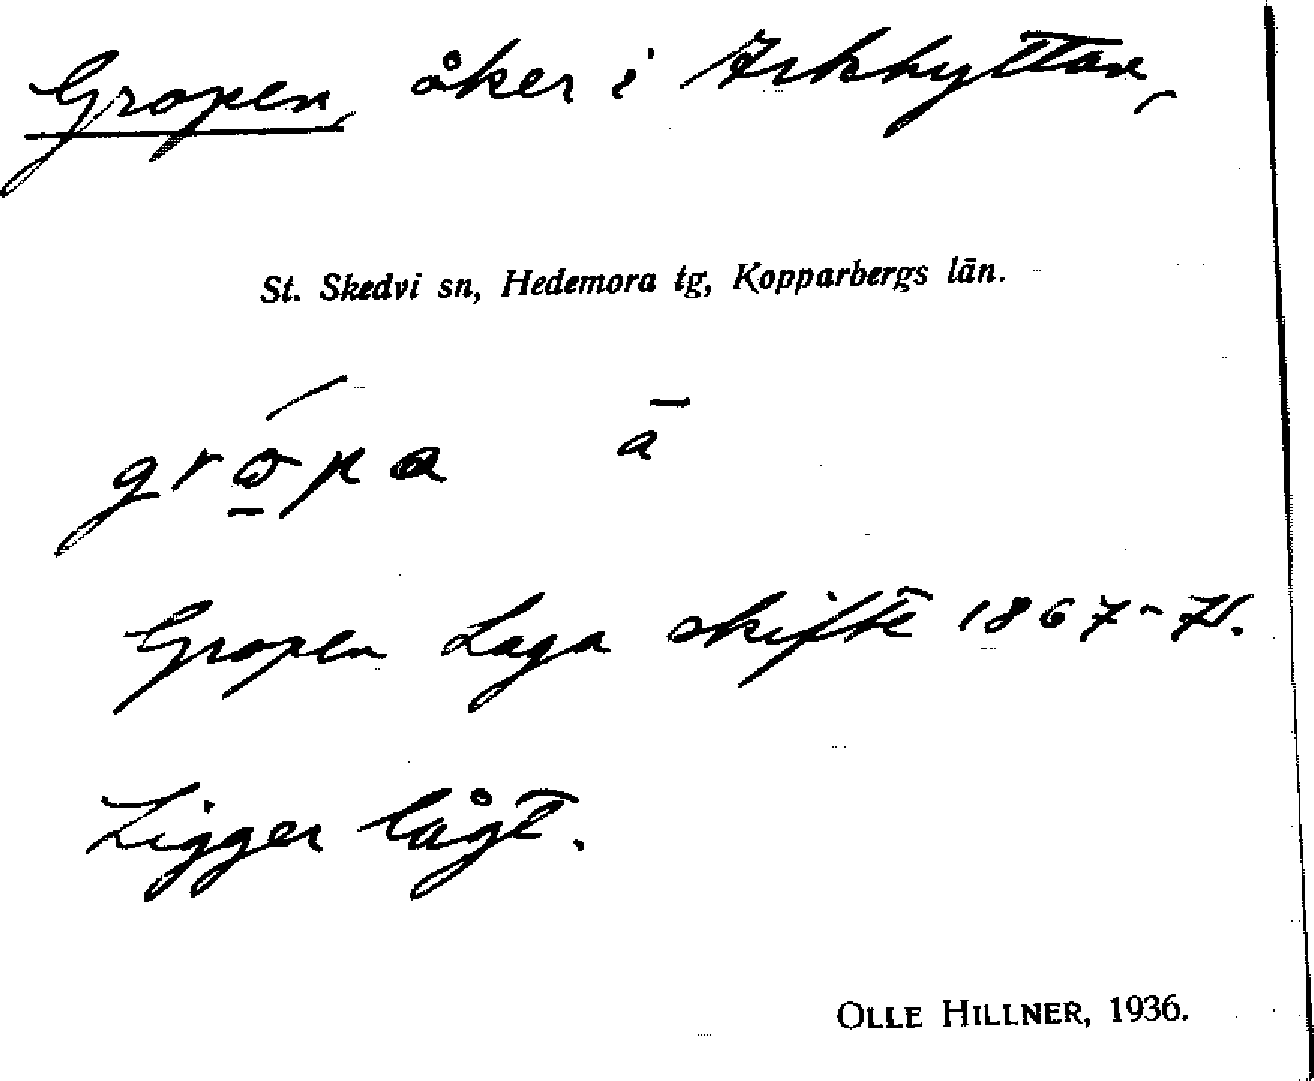 Gropen, åker i Arkhyttan,
St. Skedvi sn, Hedemora tg, Kopparbergs län.
Gropen Laga skifte 1867-71.
Ligger lågt.
OLLE HILLNER, 1936.